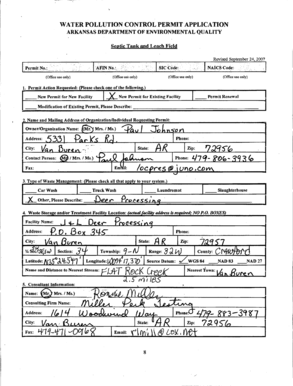 WATER POLLUTION CONTROL PERMIT APPLICATION
ARKANSAS DEPARTMENT OF ENVIRONMENTAL QUALITY
Septic Tank and Leach Field
Revised September 24, 2007
Permit No.: AFIN No.: SIC Code: NAICS Code:
(Office use only) (Office use only) (Office use only) (Office use only)
1. Permit Action Requested: (Please check one of the following.)
New Permit for New Facility X New Permit for Existing Facility Permit Renewal
Modification of Existing Permit, Please Describe:
2. Name and Mailing Address of Organization/Individual Requesting Permit:
Owner/Organization Name: (Mr / Mrs. / Ms.) Paul Johnson
Address: 5331 Parks Rd. Phone:
City: Van Buren State: AR Zip: 72956
Contact Person: (Mr / Mrs. / Ms.) Paul Johnson Phone: 479-806-3936
Fax: Email: locpres@juno.com
3. Type of Waste Management: (Please check all that apply to your system.)
Car Wash Truck Wash Laundromat Slaughterhouse
X Other, Please Describe: Deer Processing
4. Waste Storage and/or Treatment Facility Location (actual facility address is required; NO P.O. BOXES)
Facility Name: J & L Deer Processing
Address: P.O. Box 345 Phone:
City: Van Buren State: AR Zip: 72957
Section: 34 Township: 9-N Range: 32W County: Crawford
Latitude: Longitude: Source Datum: WGS 84 NAD 83 NAD 27
Name and Distance to Nearest Stream: FLAT Rock Creek Nearest Town: Van Buren
2.5 miles
5. Consultant Information:
Name: (Mr / Mrs. / Ms.)
Consulting Firm Name: Miller Perk Testing
Address: 1614 Woodwind Way Phone: 479-883-3987
City: Van Buren State: AR Zip: 72956
Fax: 479-471-0968 Email: rlmill@cox.net
8